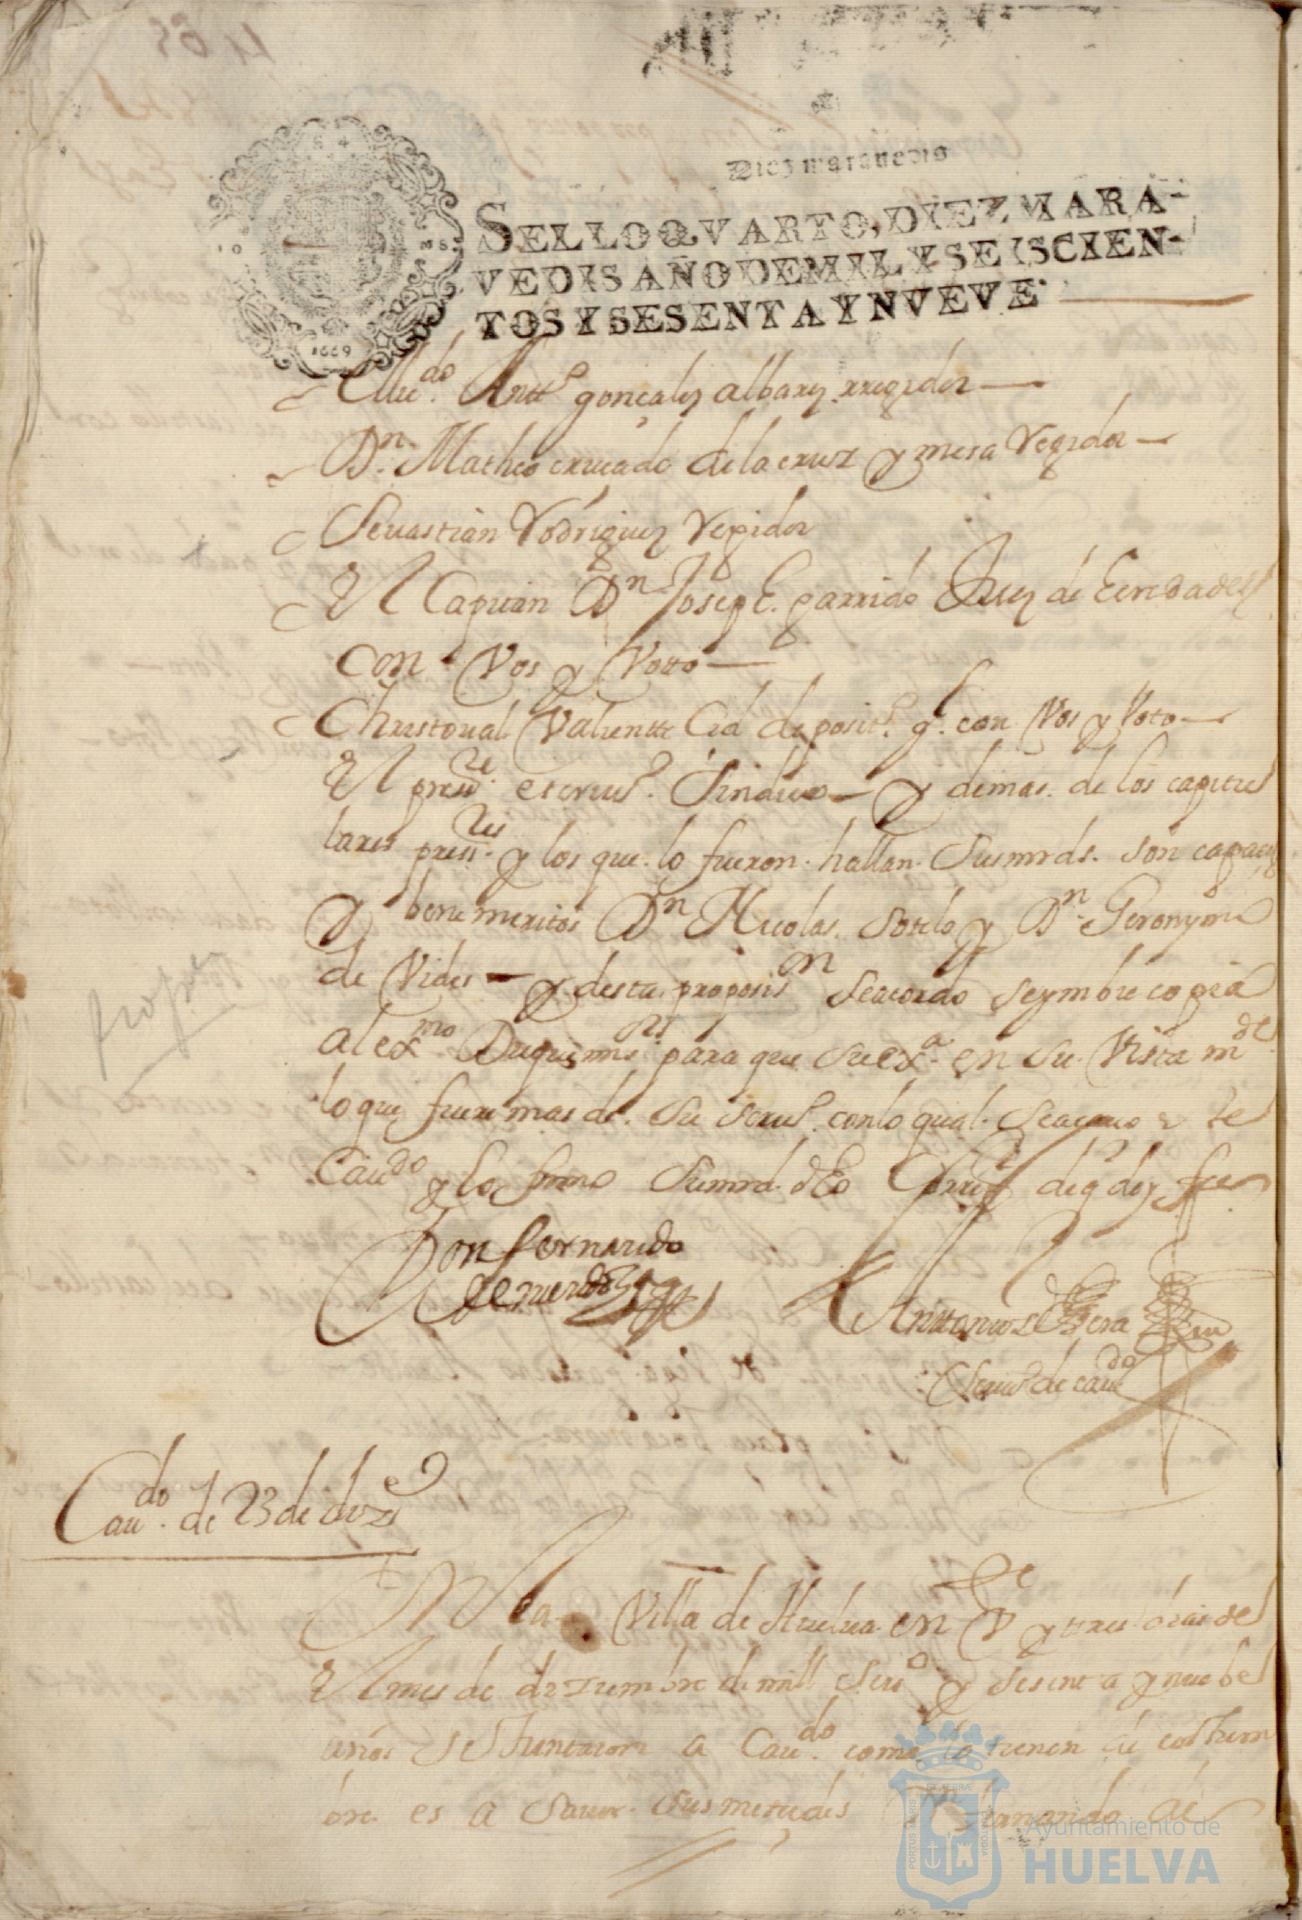 Diez marauedis
SELLO QVARTO, DIEZ MARA-
VEDIS AÑO DE MIL Y SEISCIEN-
TOS Y SESENTA Y NVEVE
1669
Antt.º gonçales albarez rregidor
Dn. Matheo cruzado de la cruz y mesa Regidor
Sevastian Rodriguez Regidor
El Capitan Dn Joseph garrido Juez de Eeredades
con Vos y Votto
Christoual Valientte Cid deposit.º g.l con Vos y Voto
El pres.te escriu.º Sindico y demas de los capitu
lares pres.tes y los que lo fueron hallan Susmrds. son capaces
y benemeritos Dn Nicolas Sotelo y Dn Geronymo
de Vides y desta proposis.on Seacordo seymbie copia
al ex.mo Duque mi s.or para que Su ex.a en su Vista m.de
lo que fuere mas de su seru.º con lo qual Seacauo este
Cau.do y lo firmo Sumrd. dho Corre.r de q doy fee
Don fernando
Anttonio de
Scriu.º de cau.do
Cau.do de 23 de diz.e
En la Villa de Huelua en Ve y tres dias de
El mes de diziembre de mill seis.º y sesenta y nuebe
años se Juntaron a Cau.do como lo tienen de costum
bre es a Sauer Sus mercedes Dn fernando de
Ayuntamiento de
HUELVA